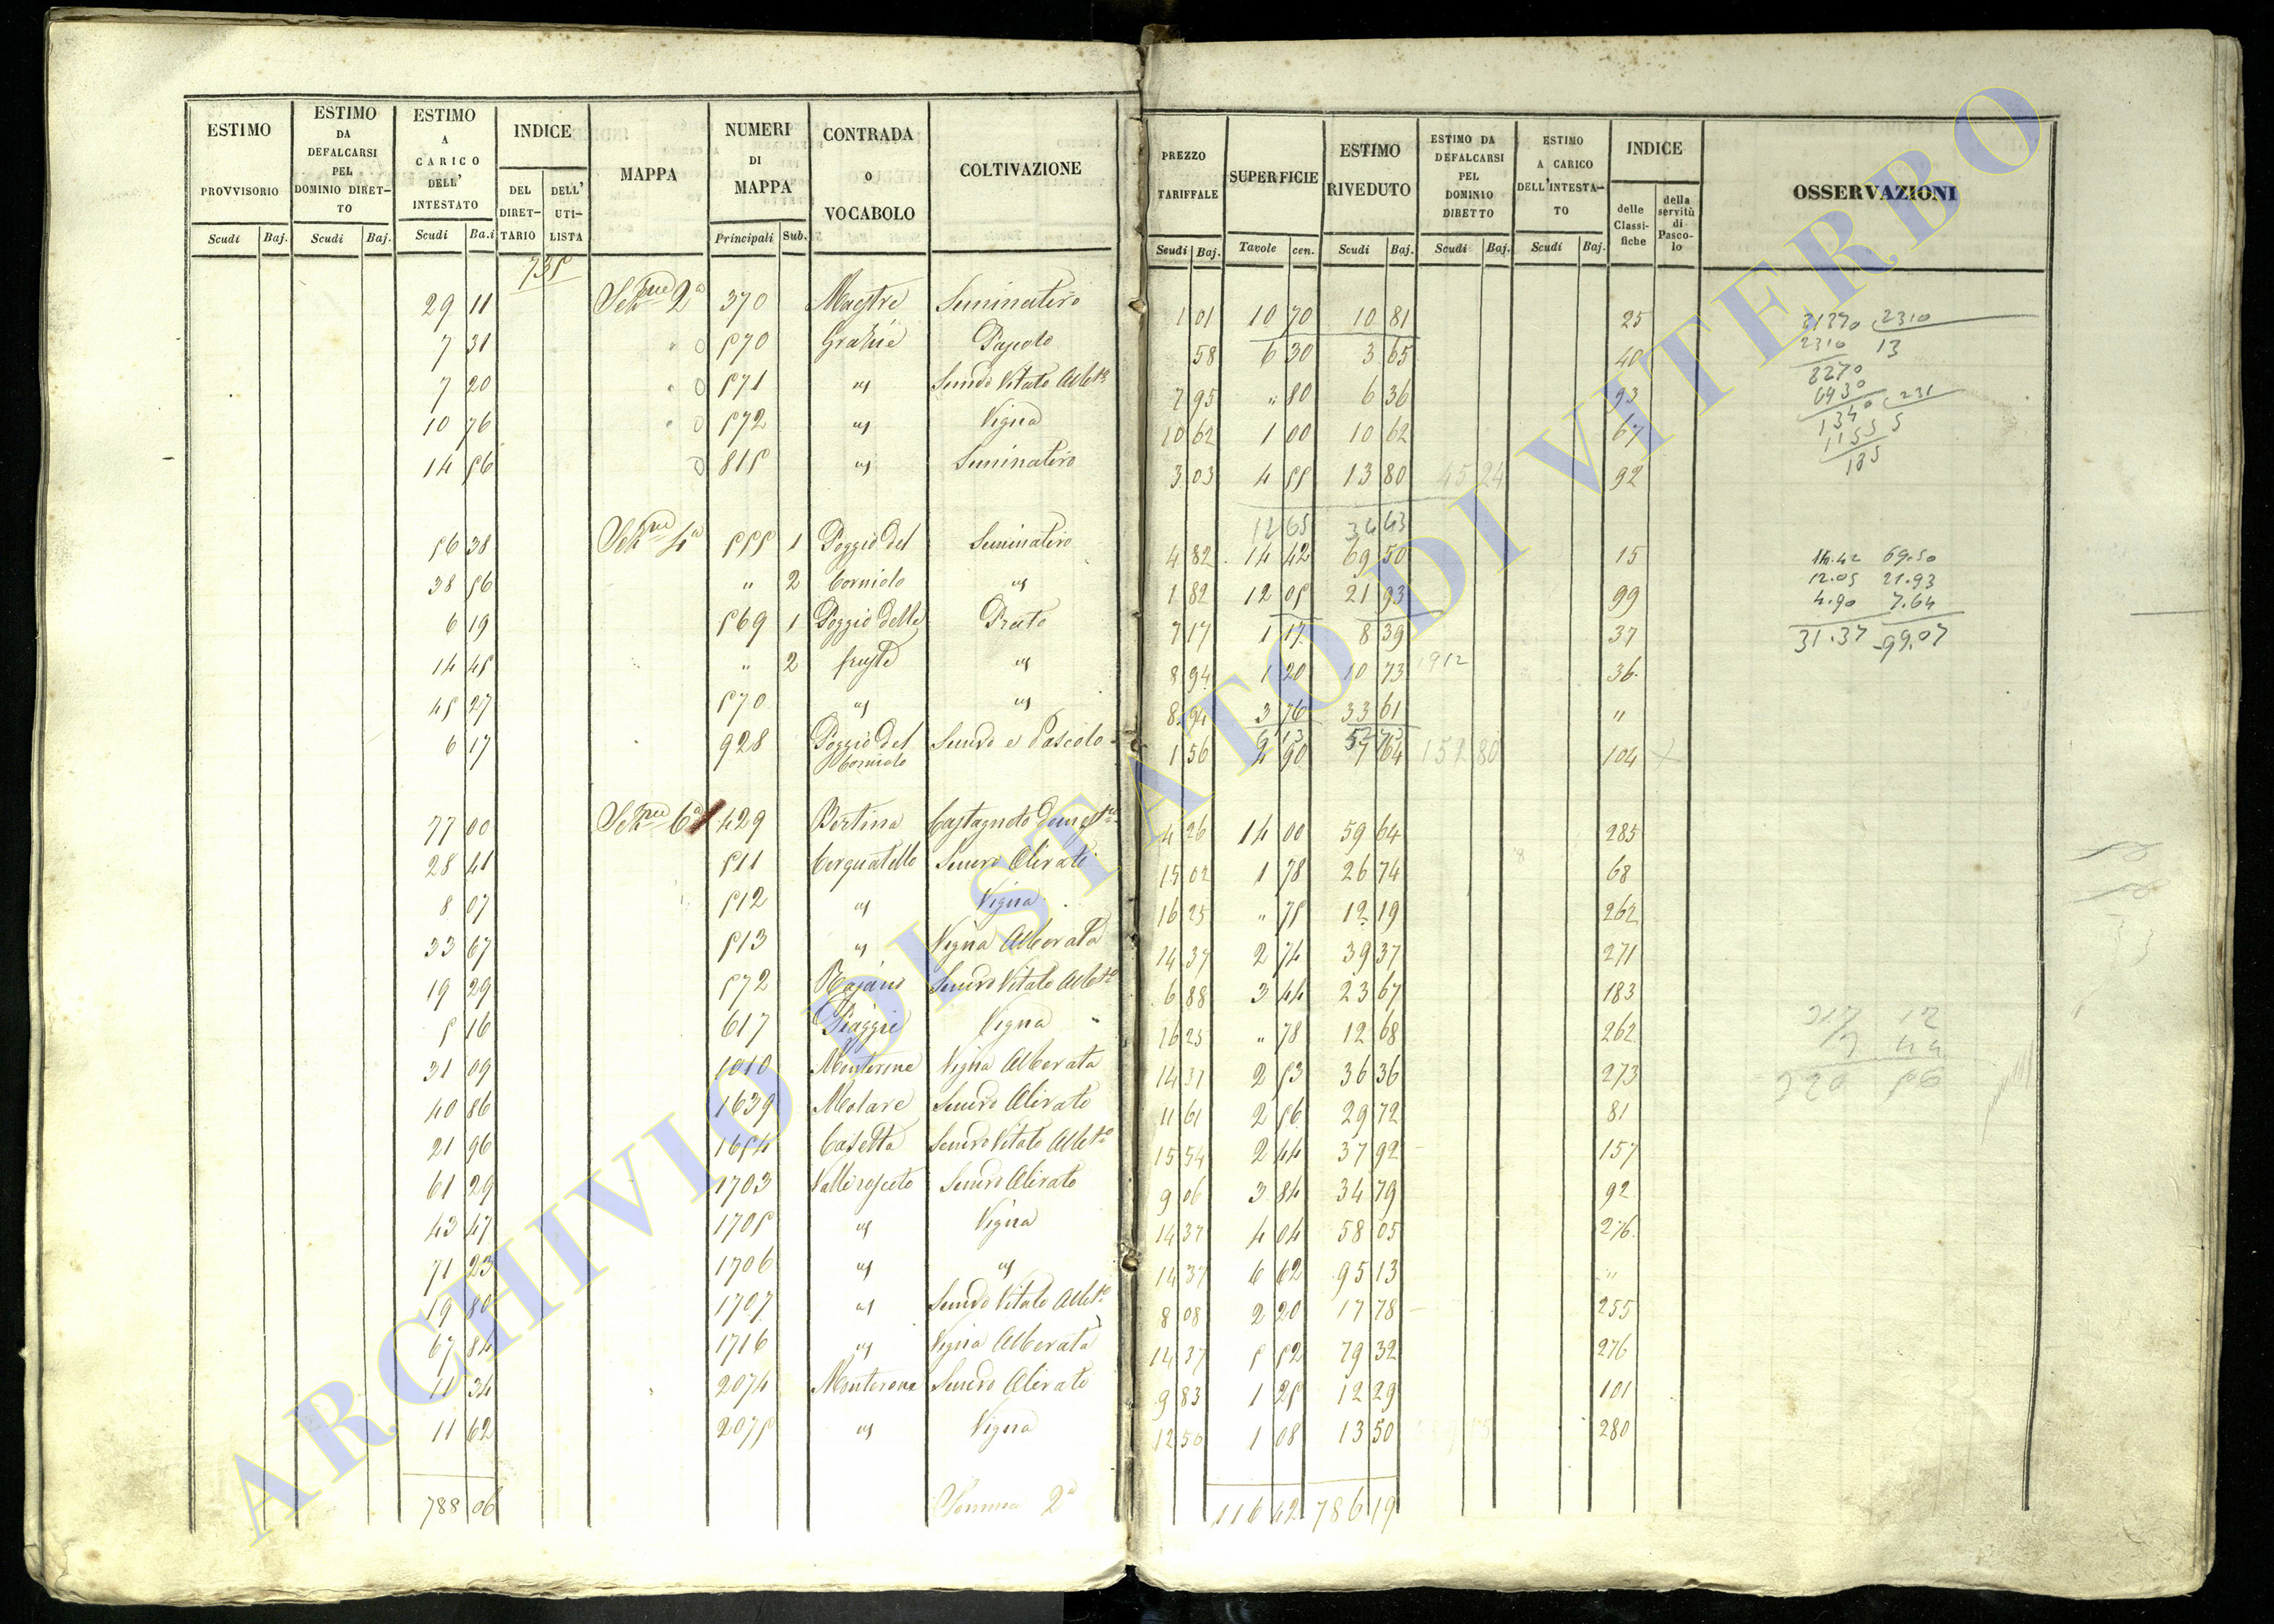 ESTIMO PROVVISORIO
Scudi Baj.
ESTIMO DA DEFALCARSI PEL DOMINIO DIRET-TO
Scudi Baj.
ESTIMO A CARICO DELL' INTESTATO
Scudi Ba.i
INDICE
DEL DIRET-TARIO
DELL' UTI-LISTA
MAPPA
NUMERI DI MAPPA
Principali Sub.
CONTRADA O VOCABOLO
COLTIVAZIONE
PREZZO TARIFFALE
Scudi Baj.
SUPERFICIE
Tavole cen.
ESTIMO RIVEDUTO
Scudi Baj.
ESTIMO DA DEFALCARSI PEL DOMINIO DIRETTO
Scudi Baj.
ESTIMO A CARICO DELL'INTESTA-TO
Scudi Baj.
INDICE
delle Classi-fiche
della servitù di Pasco-lo
OSSERVAZIONI
735
29 11 Sezne 2a 370 Maestre Seminativo 1 01 10 70 10 81 25
7 31 570 Grazie 58 6 30 3 65 40
7 20 571 " 7 95 " 80 6 36 93
10 76 572 " Vigna 10 62 1 00 10 62 67
14 56 815 " Seminativo 3 03 4 55 13 80 45 24 92
12 65 34 43
56 38 Sezne 4a 555 1 Poggio del Seminativo 4 82 14 42 69 50 15
38 56 " 2 Corniolo " 1 82 12 05 21 93 99
6 19 569 1 Poggio delle Prato 7 17 1 17 8 39 37
14 45 " 2 " 8 94 1 20 10 73 19 12 36
45 27 570 " " 8 94 3 76 33 61 "
6 17 928 Poggio del Corniolo Semvo e Pascolo 1 56 4 90 7 64 151 80 104
77 00 Sezne 6a 429 Bertina Castagneto domestco 4 26 14 00 59 64 285
28 41 511 Cerquatello Semvo Olivato 15 02 1 78 26 74 68
8 07 512 " Vigna 16 25 " 75 12 19 262
33 67 513 " Vigna Alberata 14 37 2 74 39 37 271
19 29 572 Semvo Vitato Albto 6 88 3 44 23 67 183
5 16 617 Piaggie Vigna 16 25 " 78 12 68 262
31 09 1010 Monterone Vigna Alberata 14 37 2 53 36 36 273
40 86 1639 Molare Semvo Olivato 11 61 2 56 29 72 81
21 96 1654 Casetta Semvo Vitato Albto 15 54 2 44 37 92 157
61 29 1703 Semvo Olivato 9 06 3 84 34 79 92
43 47 1705 " Vigna 14 37 4 04 58 05 276
71 23 1706 " " 14 37 6 62 95 13 "
19 80 1707 " Semvo Vitato Albto 8 08 2 20 17 78 255
67 84 1716 " Vigna Alberata 14 37 5 52 79 32 276
11 34 2074 Monterone Semvo Olivato 9 83 1 25 12 29 101
11 62 2075 " Vigna 12 50 1 08 13 50 280
788 06 Somma 2a 116 42 786 19
2310
2310 13
231
14.42 69.50
12.05 21.93
4.90 7.64
31.37 99.07
ARCHIVIO DI STATO DI VITERBO